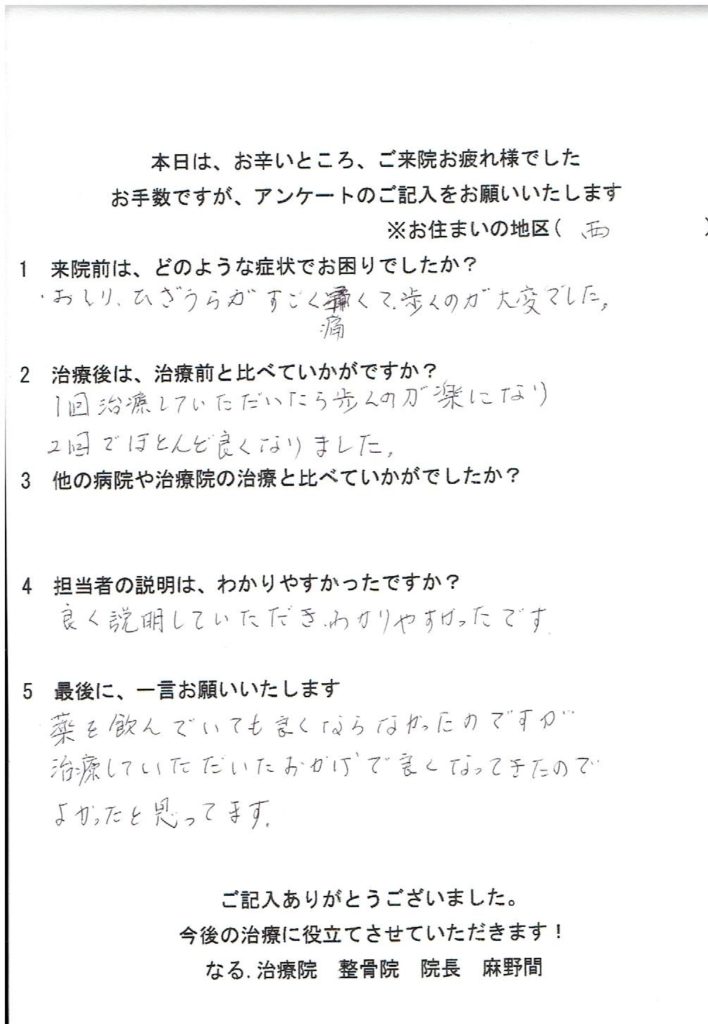 本日は、お辛いところ、ご来院お疲れ様でした
お手数ですが、アンケートのご記入をお願いいたします
※お住まいの地区( 西 )
1 来院前は、どのような症状でお困りでしたか？
・おしり、ひざうらがすごく痛くて、歩くのが大変でした。
2 治療後は、治療前と比べていかがですか？
1回治療していただいたら歩くのが楽になり
2回でほとんど良くなりました。
3 他の病院や治療院の治療と比べていかがでしたか？
4 担当者の説明は、わかりやすかったですか？
良く説明していただき、わかりやすかったです
5 最後に、一言お願いいたします
薬を飲んでいても良くならなかったのですが
治療していただいたおかげで良くなってきたので
よかったと思ってます。
ご記入ありがとうございました。
今後の治療に役立てさせていただきます！
なる.治療院 整骨院 院長 麻野間